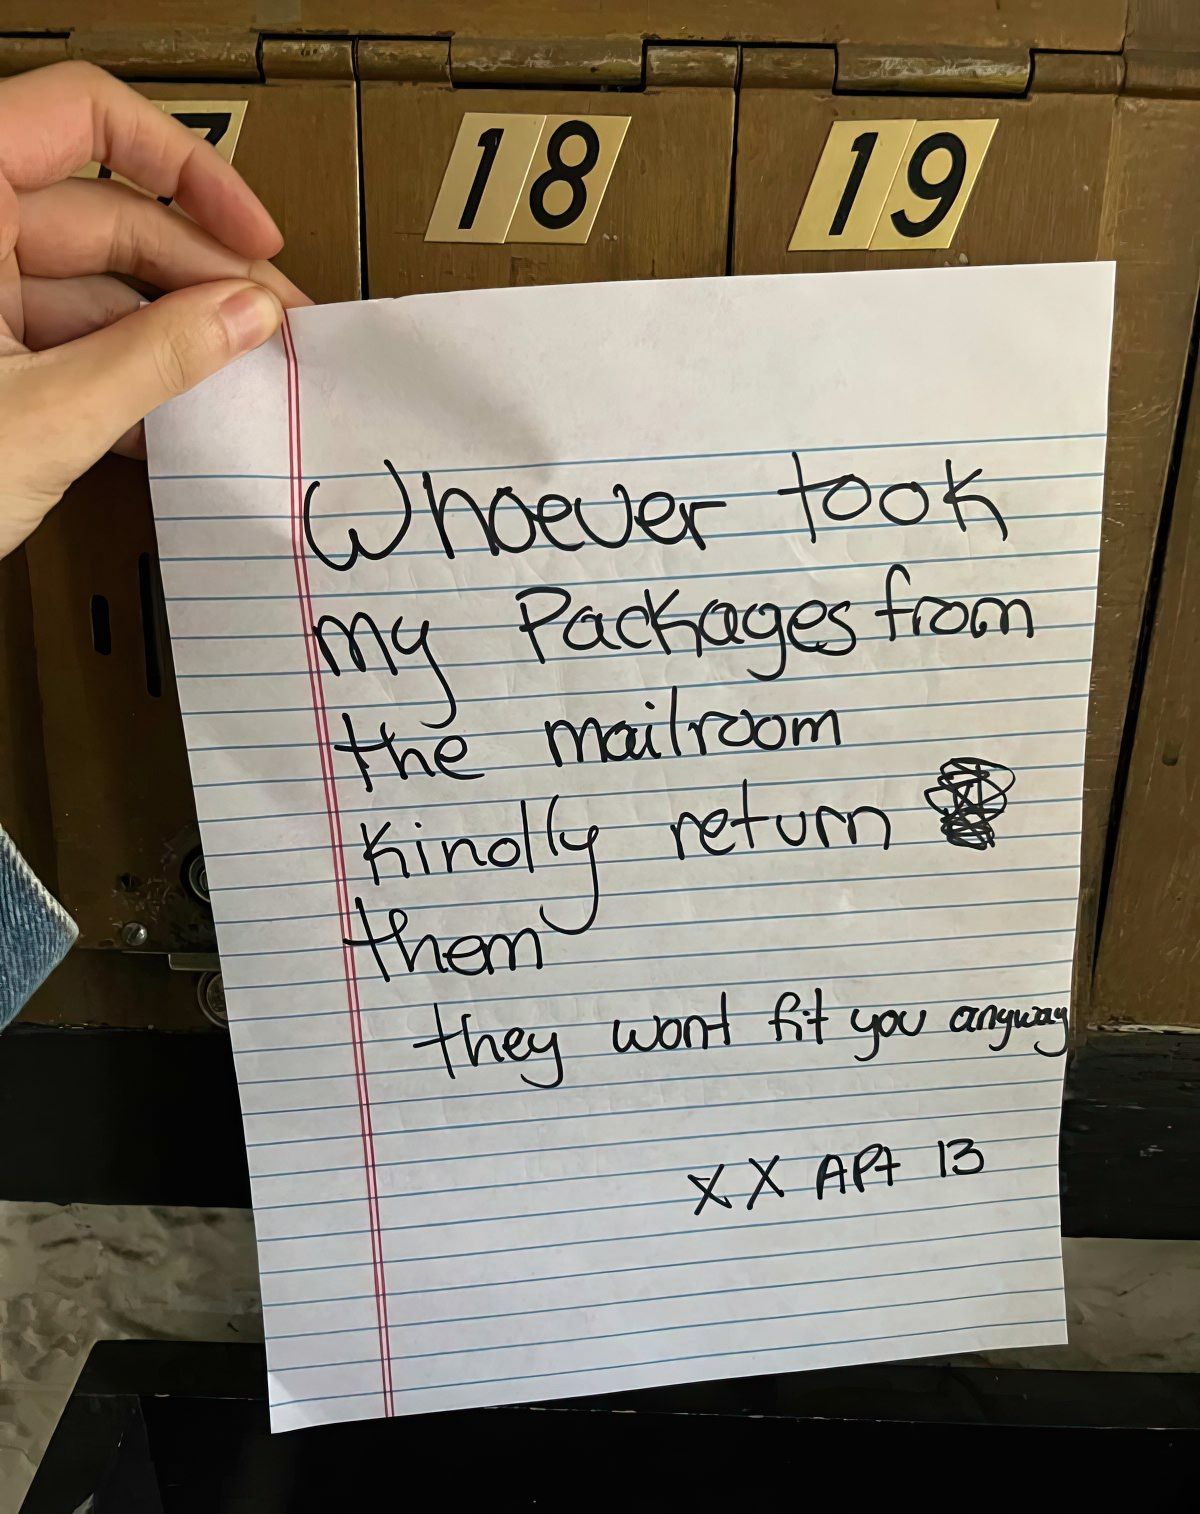 18
19
Whoever took
my Packages from
the mailroom
Kindly return
them
they wont fit you anyway
XX APt 13